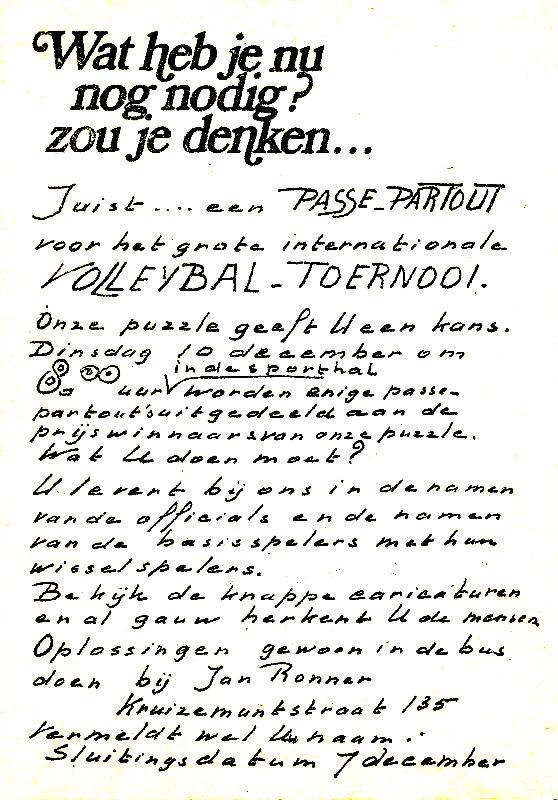 Wat heb je nu
nog nodig?
zou je denken...
Juist .... een PASSE-PARTOUT
voor het grote internationale
VOLLEYBAL-TOERNOOI.
Onze puzzle geeft U een kans.
Dinsdag 10 december om
in de sporthal
uur worden enige passe-
partout's uitgedeeld aan de
prijswinnaars van onze puzzle.
Wat U doen moet?
U levert bij ons in de namen
van de officials en de namen
van de basisspelers met hun
wisselspelers.
Bekijk de knappe caricaturen
en al gauw herkent U de mensen
Oplossingen gewoon in de bus
doen bij Jan Ronner
Kruizemuntstraat 135
Vermeldt wel Uw naam.
Sluitingsdatum 7 december